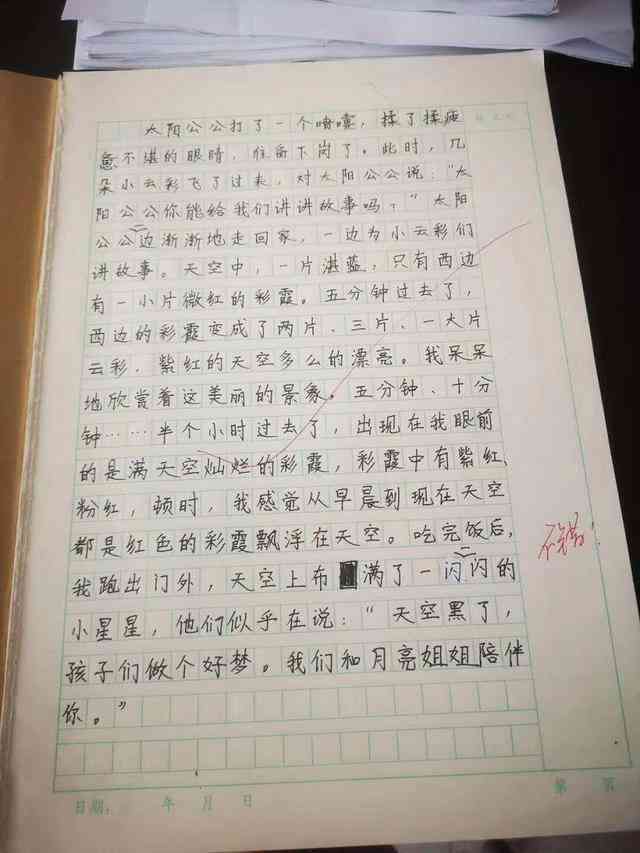 太阳公公打了一个喷嚏，揉了揉疲
惫不堪的眼睛，准备下岗了。此时，几
朵小云彩飞了过来，对太阳公公说："太
阳公公你能给我们讲讲故事吗？"太阳
公公一边渐渐地走回家，一边为小云彩们
讲故事。天空中，一片湛蓝，只有西边
有一小片微红的彩霞。五分钟过去了，
西边的彩霞变成了两片、三片、一大片
云彩，紫红的天空多么的漂亮。我呆呆
地欣赏着这美丽的景象。五分钟、十分
钟……半个小时过去了，出现在我眼前
的是满天空灿烂的彩霞，彩霞中有紫红、
粉红，顿时，我感觉从早晨到现在天空
都是红色的彩霞飘浮在天空。吃完饭后，
不错！
我跑出门外，天空上布满了一闪一闪的
小星星，他们似乎在说："天空黑了，
孩子们做个好梦。我们和月亮姐姐陪伴
你。"
日期： 年 月 日
第 页